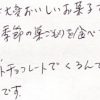 大変おいしいお菓子で
季節の菓子ものを食べ
トチョコレートでくるんで
です。